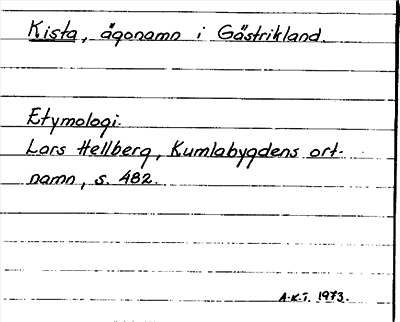 Kista, ägonamn i Gästrikland.
Etymologi.
Lars Hellberg, Kumlabygdens ort-
namn, s. 482.
A.K.T. 1973.